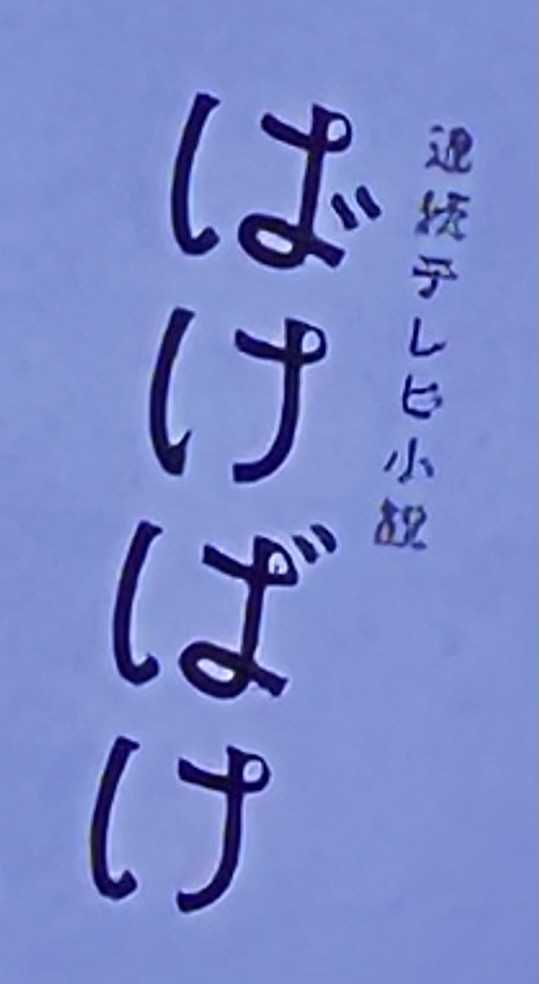 連続テレビ小説
ばけばけ